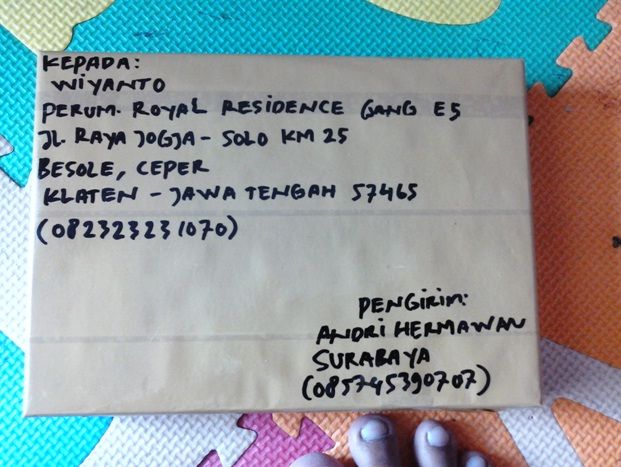 KEPADA:
WIYANTO
PERUM. ROYAL RESIDENCE GANG E5
JL. RAYA JOGJA - SOLO KM 25
BESOLE, CEPER
KLATEN - JAWA TENGAH 57465
(082323231070)
PENGIRIM:
ANDRI HERMAWAN
SURABAYA
(085745390707)